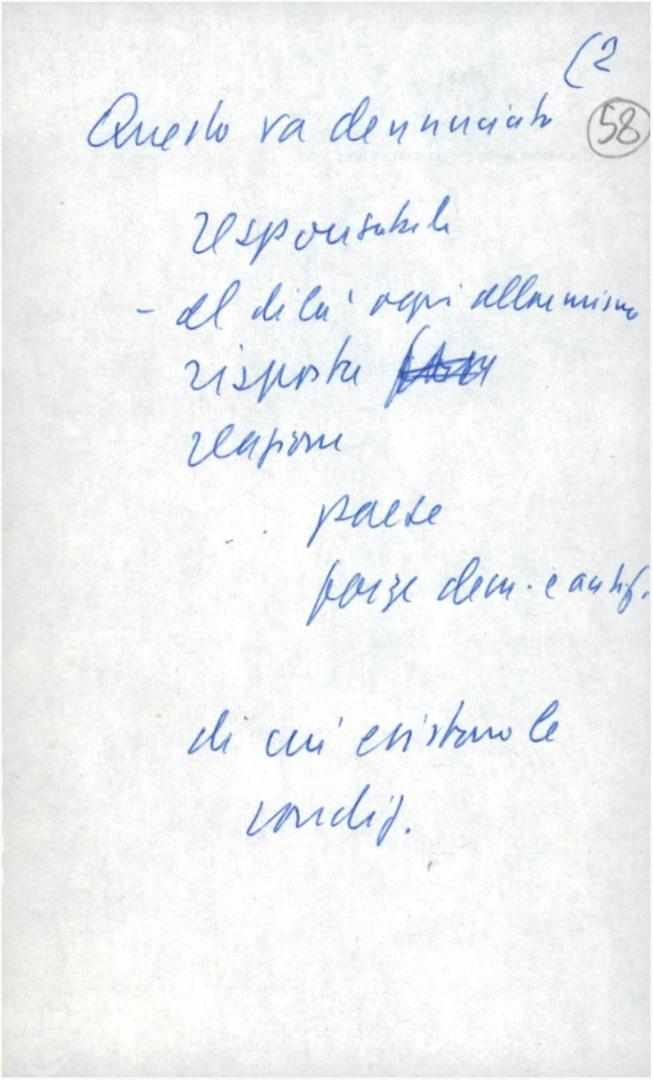 (2
Questo va denunciato
58
responsabile
- al di là ogni allarmismo
risposta
reazione
paese
forze dem. e antif.
di cui esistono le
condiz.